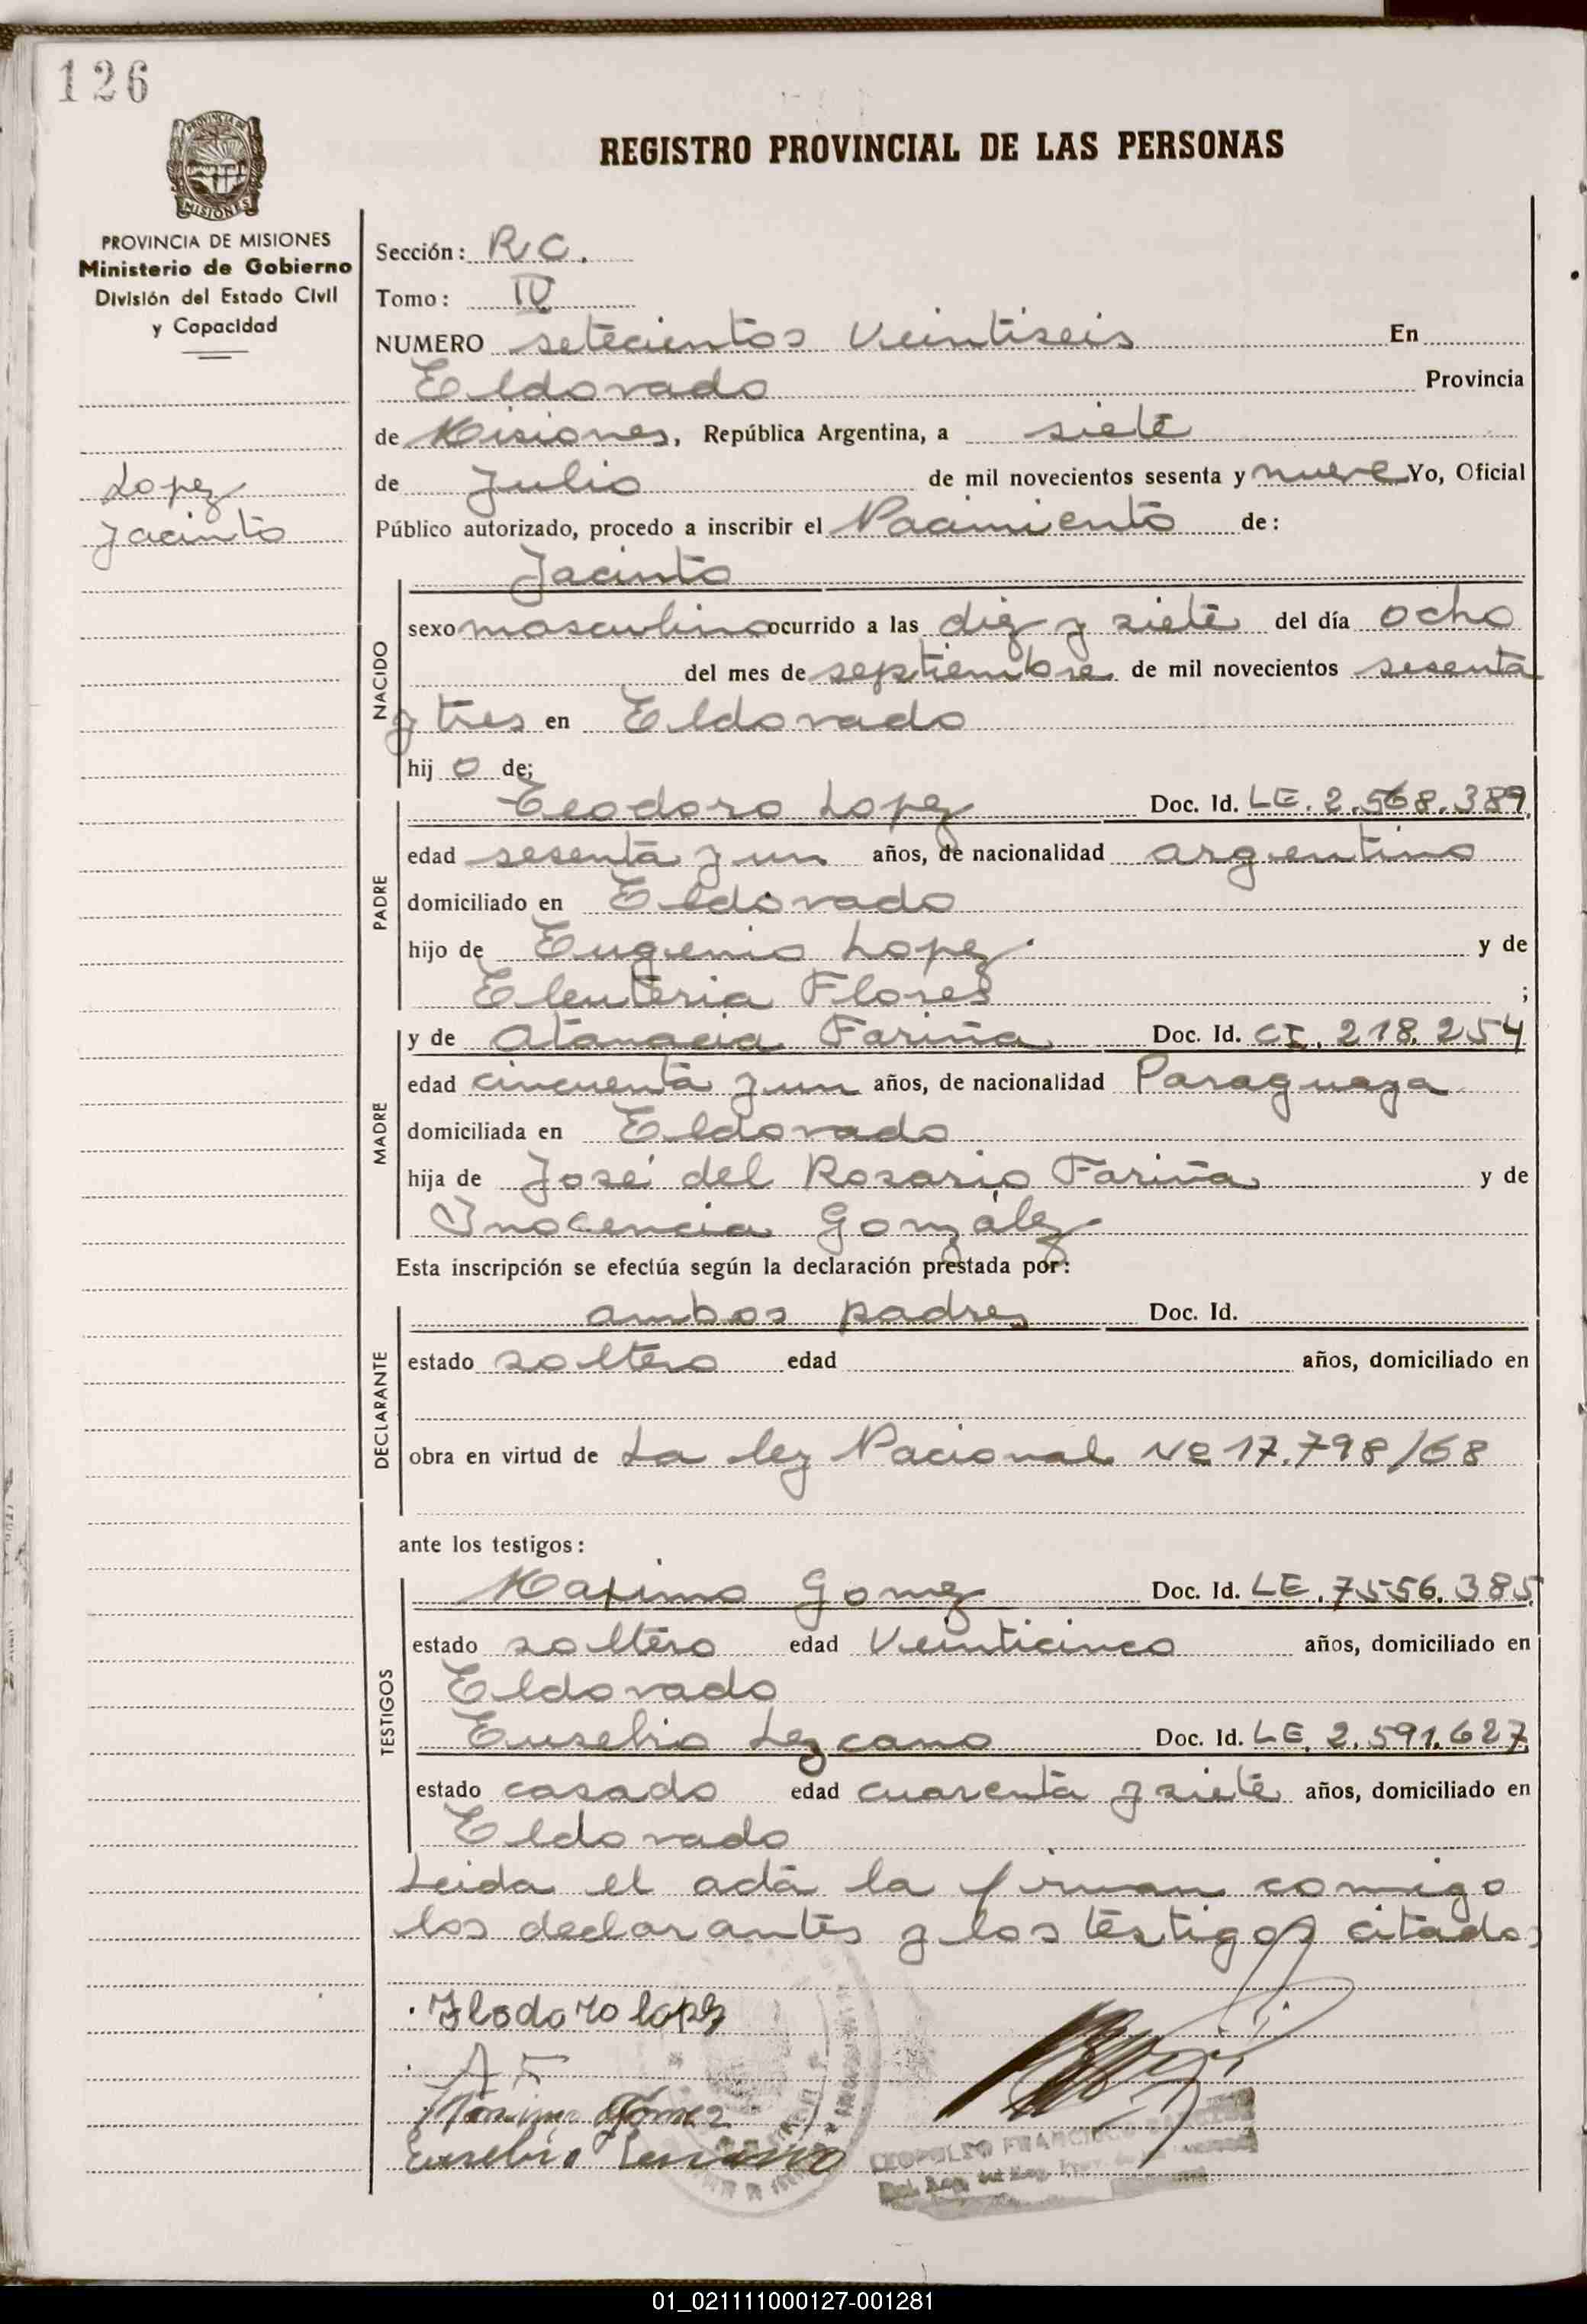 126
PROVINCIA DE
MISIONES
REGISTRO PROVINCIAL DE LAS PERSONAS
PROVINCIA DE MISIONES
Ministerio de Gobierno
División del Estado Civil
y Capacidad
Lopez
Jacinto
Sección: R.C.
Tomo: IV
NUMERO setecientos veintiseis En
Eldorado Provincia
de Misiones, República Argentina, a siete
de Julio de mil novecientos sesenta y nueve Yo, Oficial
Público autorizado, procedo a inscribir el Nacimiento de:
Jacinto
NACIDO
sexo masculino ocurrido a las diez y siete del día ocho
del mes de septiembre de mil novecientos sesenta
y tres en Eldorado
hij o de;
PADRE
Teodoro Lopez Doc. Id. LE. 2.568.389
edad sesenta y un años, de nacionalidad argentino
domiciliado en Eldorado
hijo de Eugenio Lopez y de
Eleuteria Flores ;
MADRE
y de Atanacia Fariña Doc. Id. CI. 218.254
edad cincuenta y un años, de nacionalidad Paraguaya
domiciliada en Eldorado
hija de José del Rosario Fariña y de
Inocencia González
Esta inscripción se efectúa según la declaración prestada por:
DECLARANTE
ambos padres Doc. Id.
estado soltero edad años, domiciliado en
obra en virtud de La ley Nacional Nº 17.798/68
ante los testigos:
TESTIGOS
Maximo Gomez Doc. Id. LE. 7556.385
estado soltero edad Veinticinco años, domiciliado en
Eldorado
Eusebio Lezcano Doc. Id. LE. 2.591.627
estado casado edad cuarenta y siete años, domiciliado en
Eldorado
Leida el acta la firman comigo
los declarantes y los testigos citados
Jlodoro lopez
A F
Maximo Gómez
Eusebio Lezcano
LEOPOLDO FRANCISCO
01_021111000127-001281